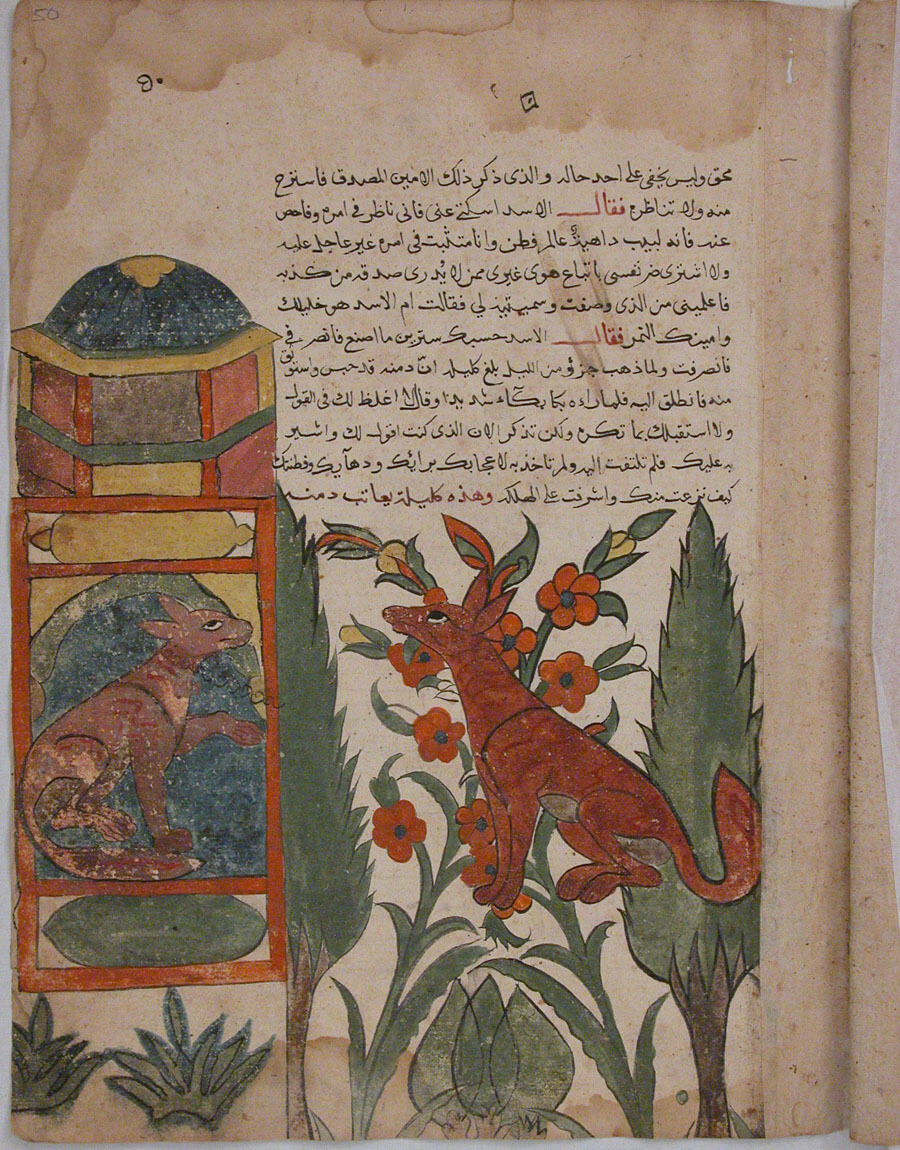 50
محق وليس يخفى على احد حاله والذى ذكر ذلك الامين المصدق فاسترح
منه ولا تناظره فقال الاسد اسكتى عنى فانى ناظر فى امره وفاحص
عنه فانه لبيب داهية عالم فطن وانا متثبت فى امره غير عاجل عليه
ولا اشترى ضر نفسى باتباع هوى غيرى ممن لا يدرى صدقه من كذبه
فاعلمينى من الذى وصفت وسميته لى فقالت ام الاسد هو خليلك
وامينك النمر فقال الاسد حسبك سترين ما اصنع فانصرفى
فانصرفت ولما ذهب جزؤ من الليل بلغ كليلة ان دمنه قد حبس واستوثق
منه فانطلق اليه فلما راه بكا بكآء شديدا وقال لا اغلظ لك فى القول
ولا استقبلك بما تكره ولكن تذكر الان الذى كنت اقول لك واشير
به عليك فلم تلتفت اليه ولم تاخذ به لاعجابك برايك ودهآيك وفطنتك
كيف منك واشرفت على الهلكه وهذه كليلة يعاتب دمنه